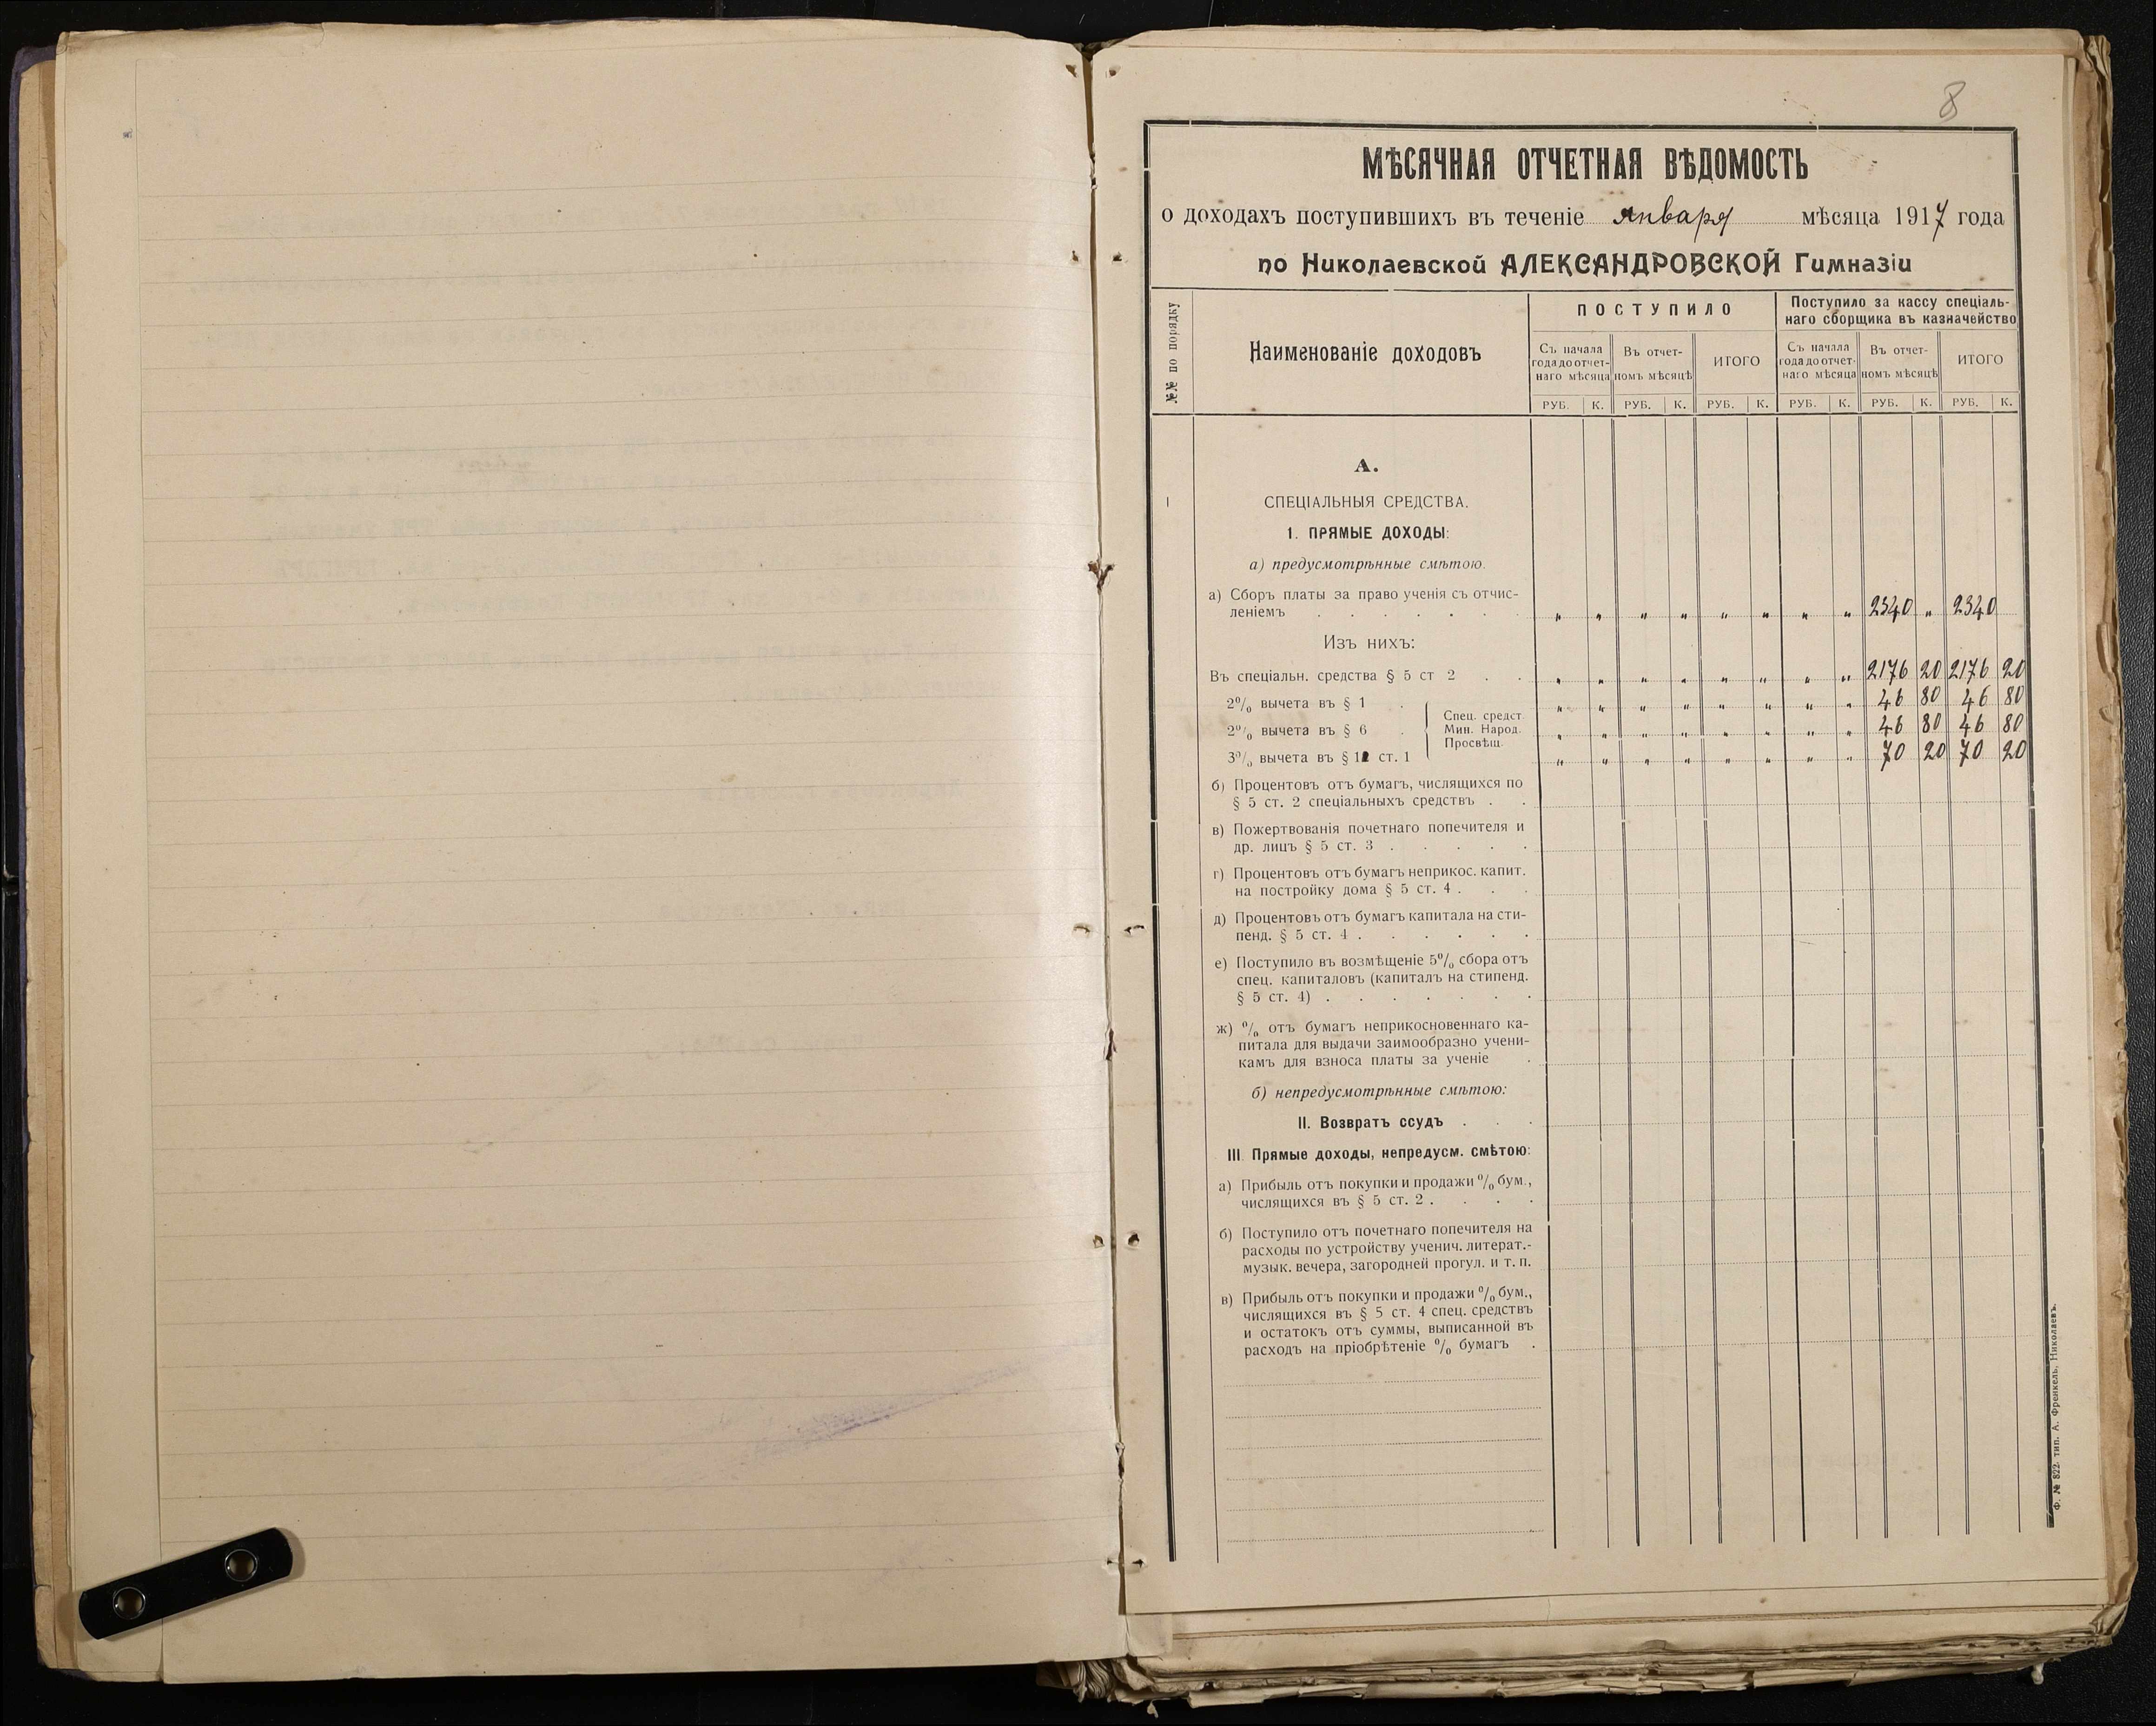 8
МѢСЯЧНАЯ ОТЧЕТНАЯ ВѢДОМОСТЬ
о доходахъ поступившихъ въ теченіе января мѣсяца 1917 года
по Николаевской АЛЕКСАНДРОВСКОЙ Гимназіи
№№ по порядку
Наименованіе доходовъ
ПОСТУПИЛО
Поступило за кассу спеціаль-
наго сборщика въ казначейство
Съ начала
года до отчет-
наго мѣсяца
Въ отчет-
номъ мѣсяцѣ
ИТОГО
Съ начала
года до отчет-
наго мѣсяца
Въ отчет-
номъ мѣсяцѣ
ИТОГО
РУБ. К. РУБ. К. РУБ. К. РУБ. К. РУБ. К. РУБ. К.
А.
1 СПЕЦІАЛЬНЫЯ СРЕДСТВА.
1. ПРЯМЫЕ ДОХОДЫ:
а) предусмотрѣнные смѣтою.
а) Сборъ платы за право ученія съ отчис-
леніемъ . . . . . . " " " " " " " " 2340 " 2340
Изъ нихъ:
Въ спеціальн. средства § 5 ст 2 . . " " " " " " " " 2176 20 2176 20
2% вычета въ § 1 . " " " " " " " " 46 80 46 80
2% вычета въ § 6 . " " " " " " " " 46 80 46 80
3% вычета въ § 12 ст. 1 " " " " " " " " 70 20 70 20
Спец. средст.
Мин. Народ.
Просвѣщ.
б) Процентовъ отъ бумагъ, числящихся по
§ 5 ст. 2 спеціальныхъ средствъ . .
в) Пожертвованія почетнаго попечителя и
др. лицъ § 5 ст. 3 . . . . .
г) Процентовъ отъ бумагъ неприкос. капит.
на постройку дома § 5 ст. 4 . . .
д) Процентовъ отъ бумагъ капитала на сти-
пенд. § 5 ст. 4 . . . . . .
е) Поступило въ возмѣщеніе 5% сбора отъ
спец. капиталовъ (капиталъ на стипенд.
§ 5 ст. 4) . . . . . . .
ж) % отъ бумагъ неприкосновеннаго ка-
питала для выдачи заимообразно учени-
камъ для взноса платы за ученіе .
б) непредусмотрѣнные смѣтою:
II. Возвратъ ссудъ . . .
III Прямые доходы, непредусм. смѣтою:
а) Прибыль отъ покупки и продажи % бум.,
числящихся въ § 5 ст. 2 . . . .
б) Поступило отъ почетнаго попечителя на
расходы по устройству ученич. литерат.-
музык. вечера, загородней прогул. и т. п.
в) Прибыль отъ покупки и продажи % бум.,
числящихся въ § 5 ст. 4 спец. средствъ
и остатокъ отъ суммы, выписанной въ
расходъ на пріобрѣтеніе % бумагъ .
Ф. № 822. тип. А. Френкель, Николаевъ.